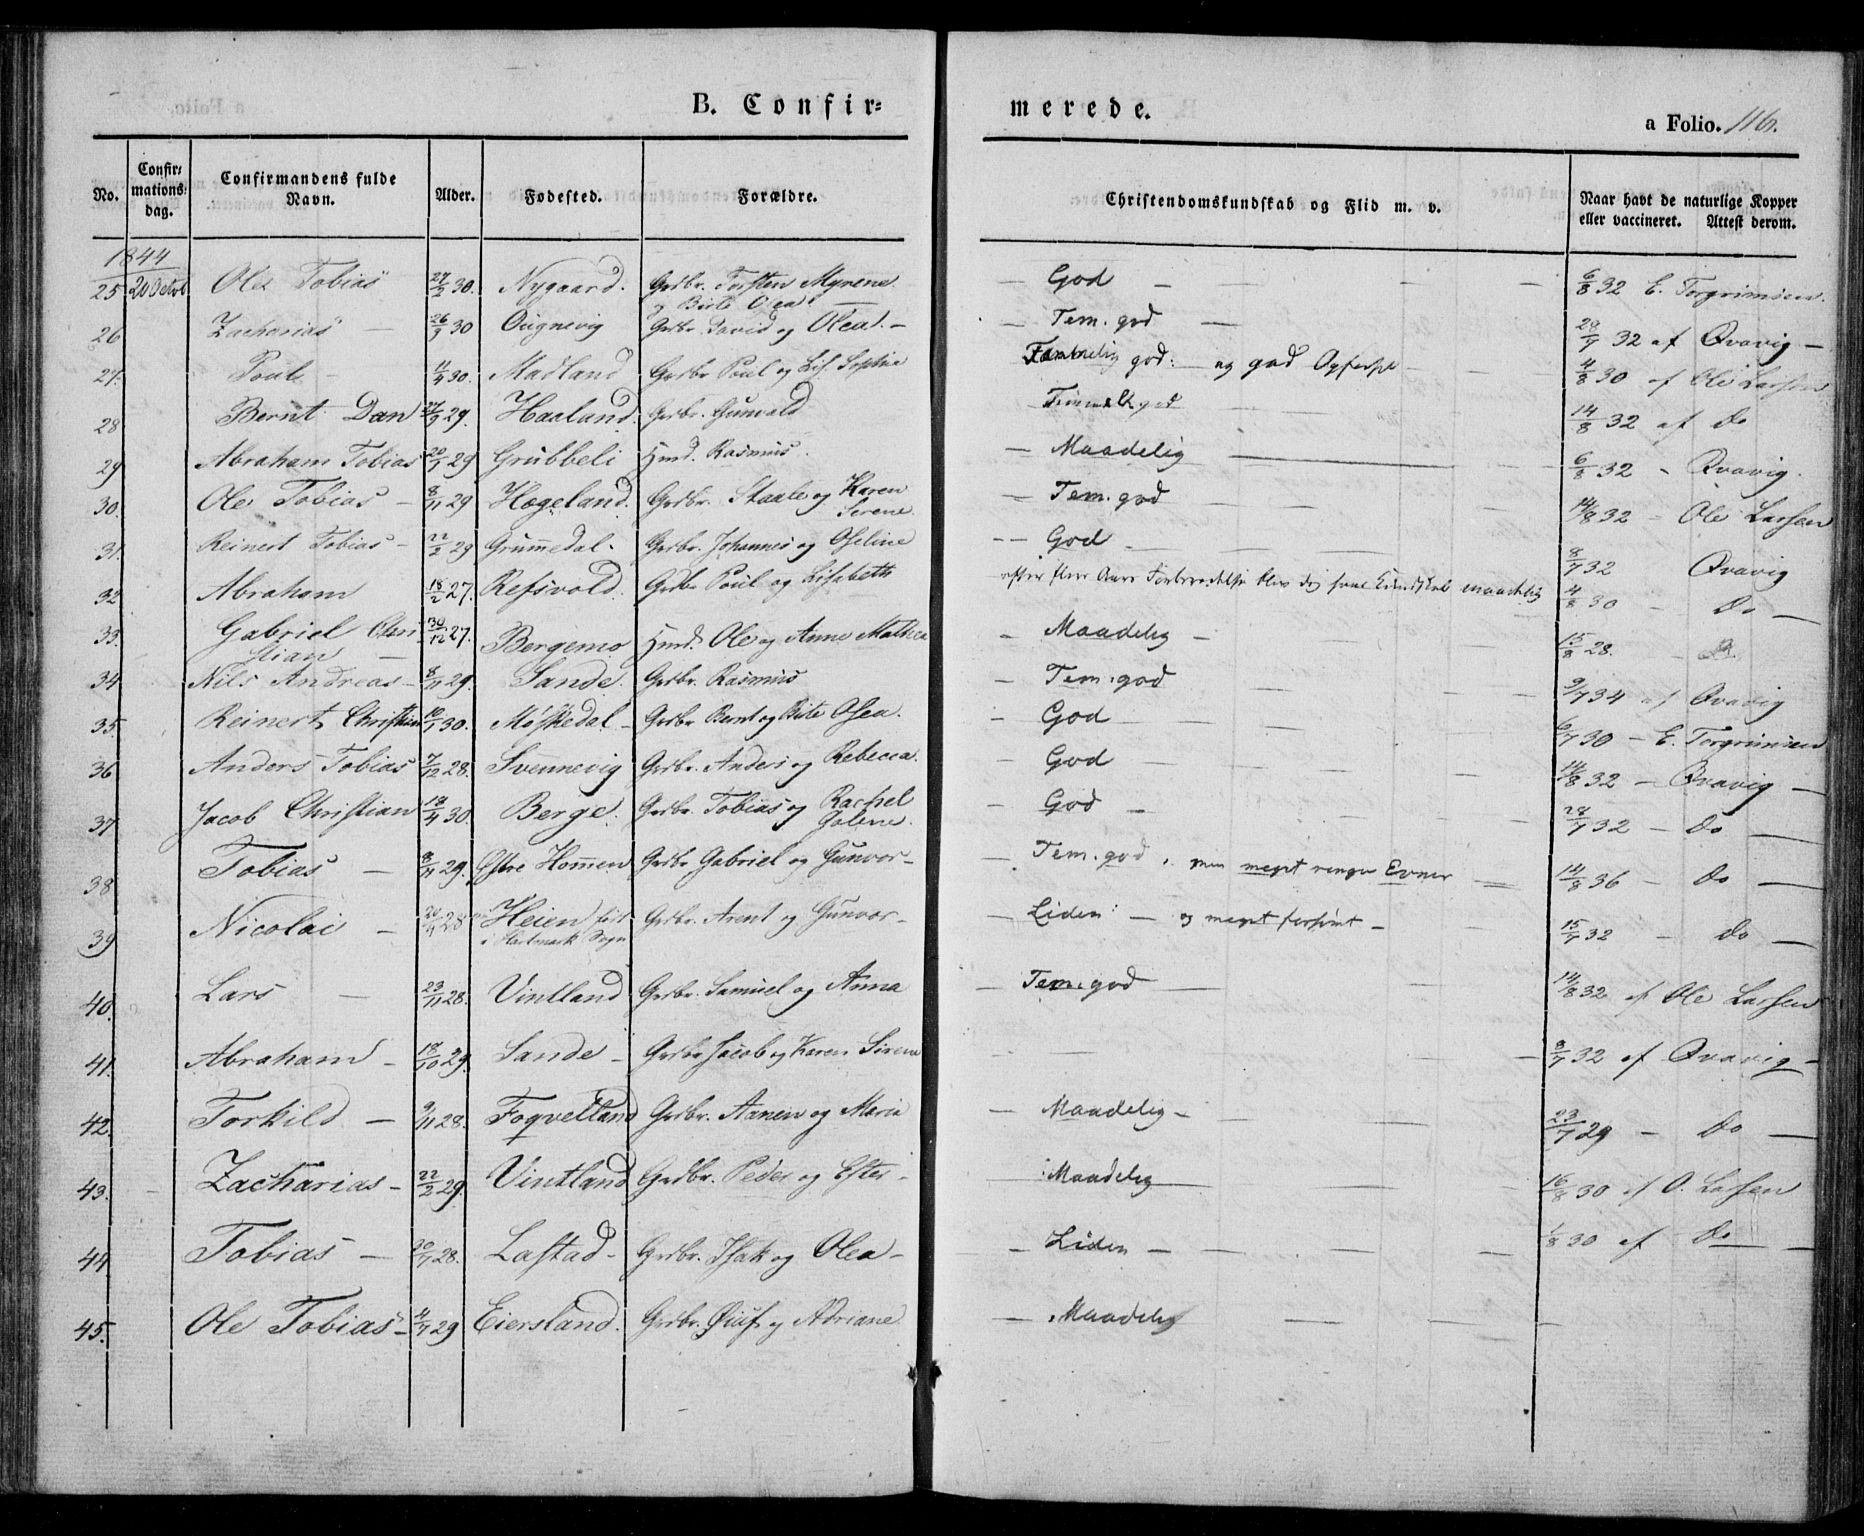 B. Confirmerede.
a Folio. 116.
No. Confirmationsdag. Confirmandens fulde Navn. Alder. Fødested. Forældre. Christendomskundskab og Flid m. v. Naar havt de naturlige Kopper eller vaccineret. Attest derom.
1844
25 20 Octob Ole Tobias 27/2 30. Nygaard. Grdbr. Torsten Myrene og Birte Olea God 6/8 32 E. Torgrimsen.
26 Zacharias 26/3 30 Ougnevig Grdbr. David og Olea. Tem. god 32 af Qvavig
27. Poul Madland Grdbr. Poul og Lis. Sophie Temmelig god. og god Opførsel 4/8 30 af Ole Larsen
28 Bernt Dan 29. Haaland. Grdbr. Gunvald Temmel. god 14/8 32 af Do
29 Abraham Tobias 29 Grubbeli Hmd. Rasmus. Maadelig 6/8 32 - Qvavig.
30. Ole Tobias - 8/11 29 Hægeland. Grdbr. Staale og Karen Serene Tem. god 14/8 32 - Ole Larsen
31. Reinert Tobias - 22/2 29 Grummedal. Grdbr. Johannes og Oseline God 8/7 32 Qvavig
32 Abraham 18/2 27. Refsvold. Grdbr. Poul og Lisabeth efter flere Aars blev maadelig 4/8 30 - Do
33. Gabriel Christian 30/12 27. Bergemo Hmd. Ole og Anne Malhea Maadelig - 15/8 28.
34 Nils Andreas - 8/11 29. Sande. Grdbr. Rasmus Tem. god 9/7 34 af Qvavig
35. Reinert Christian 30. Møskedal Grdbr. Bernt og Birte Osea. God 6/7 30 - E. Torgrimsen
36 Anders Tobias 7/12 28. Svennevig Grdbr. Anders og Rebecca. God 14/8 32 - Qvavig
37 Jacob Christian 18/4 30. Berge. Grdbr. Tobias og Rachel Goline. God 32 - Do
38 Tobias 8/11 29. Østre Hommen Grdbr. Gabriel og Gunvor - Tem. god, men meget ringe Evner 14/8 36 - Do
39 Nicolai 28 Heien født i Hartmark Sogn Grdbr. Arent og Gunvor - Liden: og meget forsømt - 15/7 32 - Do
40. Lars 23/11 28. Vintland Grdbr. Samuel og Anna Tem. god 14/8 32 af Ole Larsen
41. Abraham - 18/10 29. Sande - Grdbr. Jacob og Karen Sirene 8/7 32 af Qvavig
42. Torkild 9/11 28. Foqvelland Grdbr. Aanen og Maria Maadelig - 23/7 29 - Do
43. Zacharias - 22/2 29. Vintland Grdbr. Peder og Ester. Maadelig 16/8 30 af O. Larsen
44 Tobias 28. Lastad - Grdbr. Isak og Olea - Liden 1/8 30 af Do
45. Ole Tobias 29 Eiersland. Grdbr. og Adriane Maadelig